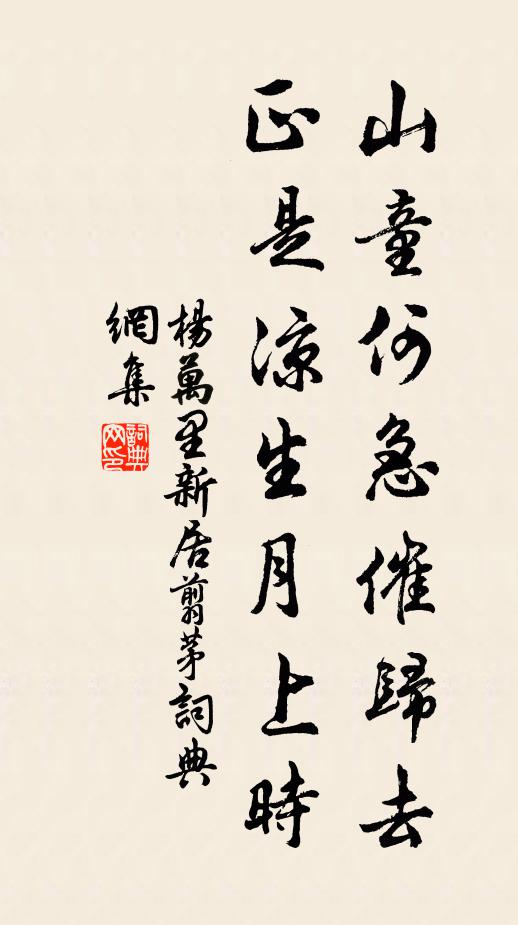 山童何急催歸去
正是涼生月上時
楊萬里新居翦茅詞典
網集
詞典網印